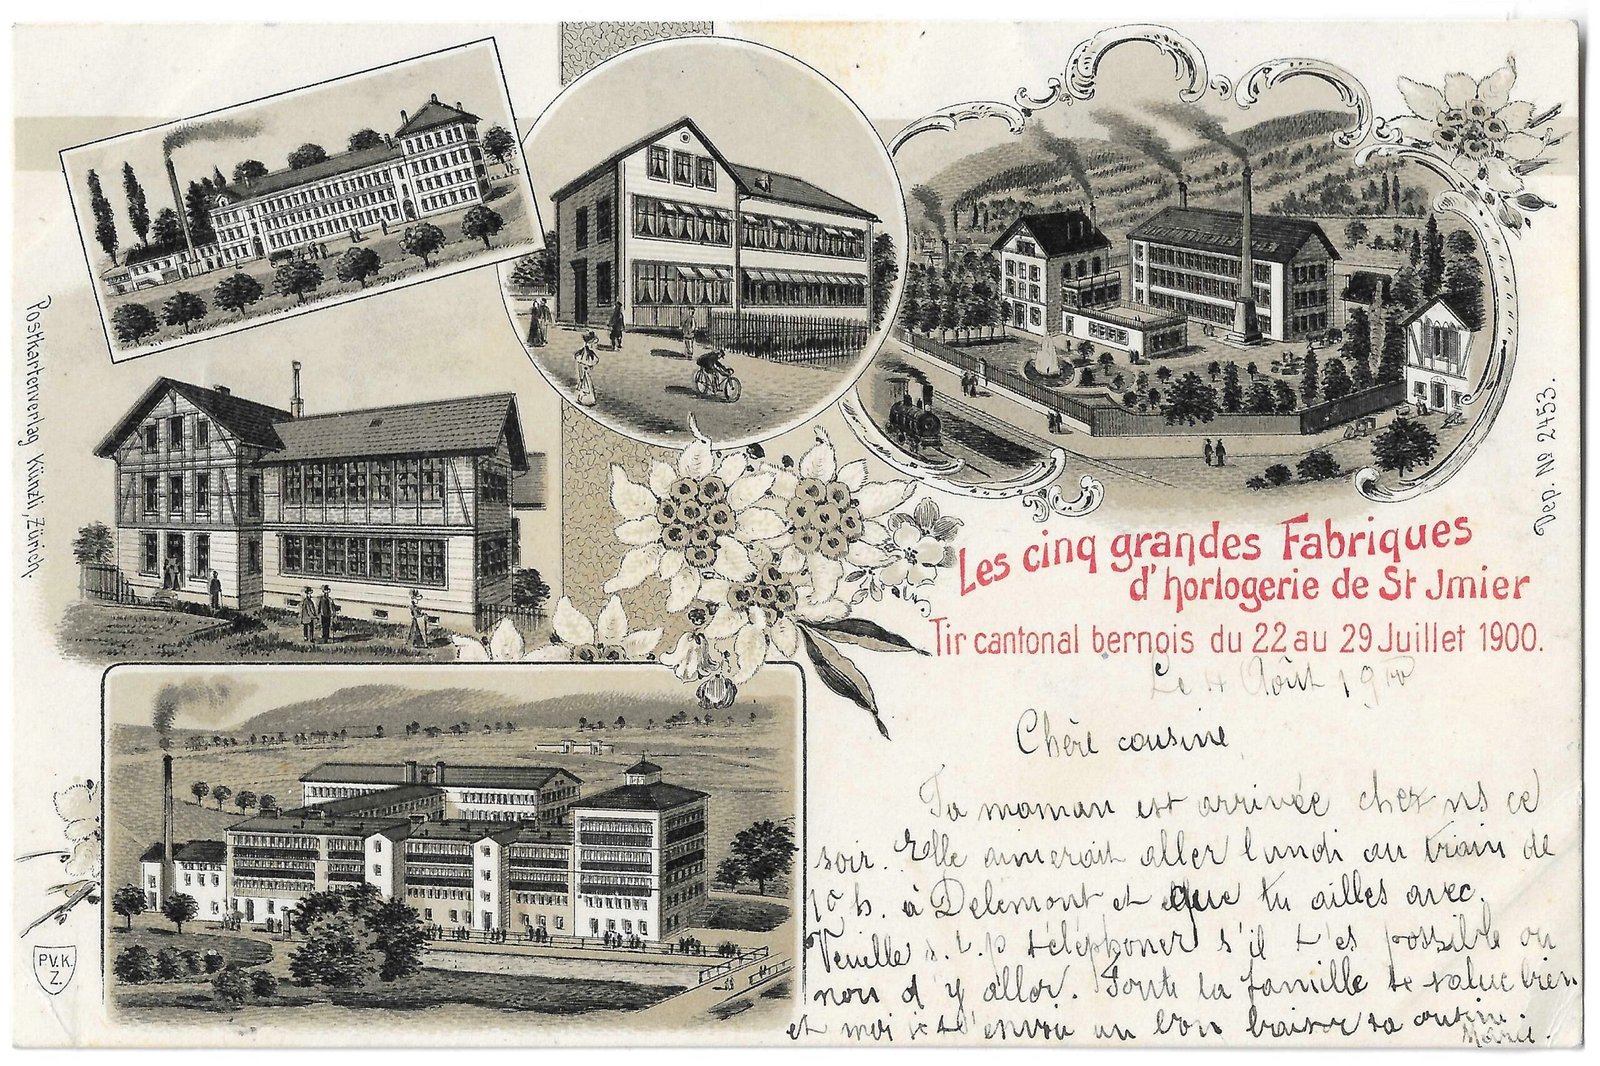 Postkartenverlag Künzli, Zürich.
Dep. No 2453.
Les cinq grandes Fabriques
d'horlogerie de St Jmier
Tir cantonal bernois du 22 au 29 Juillet 1900.
Le 4 Août 1900
Chère cousine
Ta maman est arrivée chez ns ce
soir. Elle aimerait aller lundi au train de
10 h. à Delémont et que tu ailles avec.
Veuille s. t. p téléphoner s'il t'es possible ou
non d'y aller. Toute la famille te salue bien
et moi je t'envoie un bon baiser ta cousine
Marie.
P.V.K.
Z.